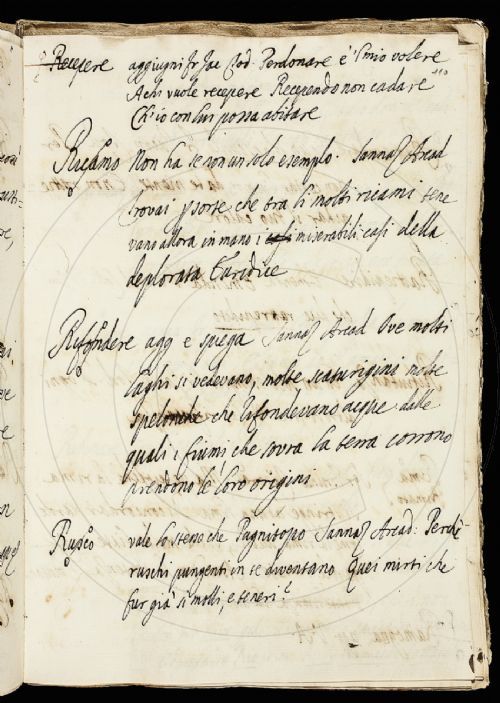 Recepere aggiugni fr Jac Tod. Perdonare è 'l mio volere
A chi vuole recepere Recependo non cadare
Ch'io con lui possa abitare
Ricamo Non ha se non un solo esempio. Sannaz Arcad
trovai p sorte che tra li molti ricami tene
vano allora in mano i casi miserabili casi della
deplorata Euridice
Rifondere agg e spiega Sannaz Arcad Ove molti
laghi si vedevano, molte scaturigini molte
spelonche che rifondevano acque dalle
quali i fiumi che sovra la terra corrono
prendono le loro origini
Rusco vale lo stesso che Pugnitopo Sannaz Arcad: Perchè
ruschi pungenti in te diventano Quei mirti che
fur già si molli, e teneri?